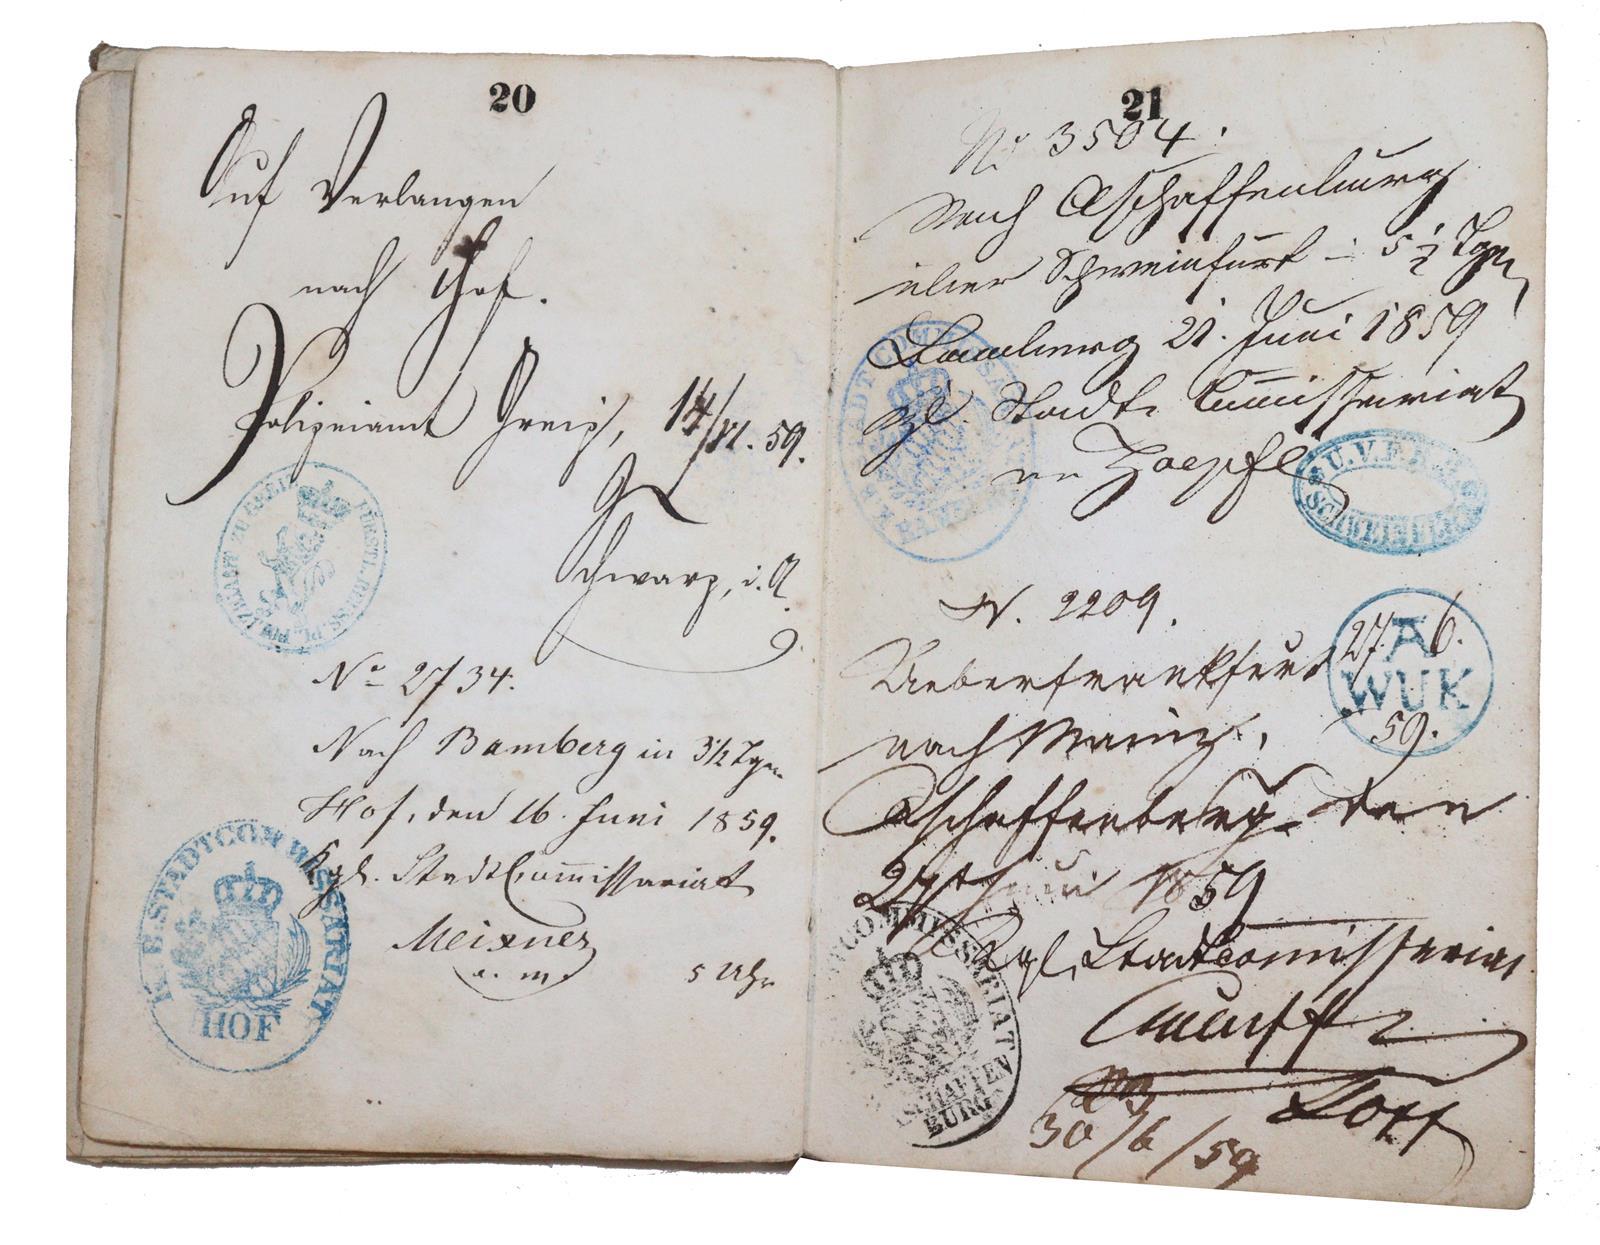 20
Auf Verlangen
nach Hof.
Polizeiamt Greiz, 14/VI. 59.
Schwarz, i. A.
FÜRSTL. REUSS. PL.
No 2734.
Nach Bamberg in 3 1/2 Tgen
Hof, den 16. Juni 1859.
Kgl. StadtCom̄issariat
Meixner
a. m. 5 Uhr
K. B. STADTCOMMISSARIAT
HOF
21
No 3504.
Nach Aschaffenburg
über Schweinfurt in 5 1/2 Tgen
Bamberg 21. Juni 1859
Kgl. Stadt Com̄issariat
STADTCOMMISSARIAT
BAMBERG
N. 2209.
27. 6.
A
WUK
59.
Ueber frankfurt
nach Mainz.
Aschaffenberg den
27t Juni 1859
Kgl. Stadtcomissariat
STADTCOMMISSARIAT
ASCHAFFENBURG
30/6/59